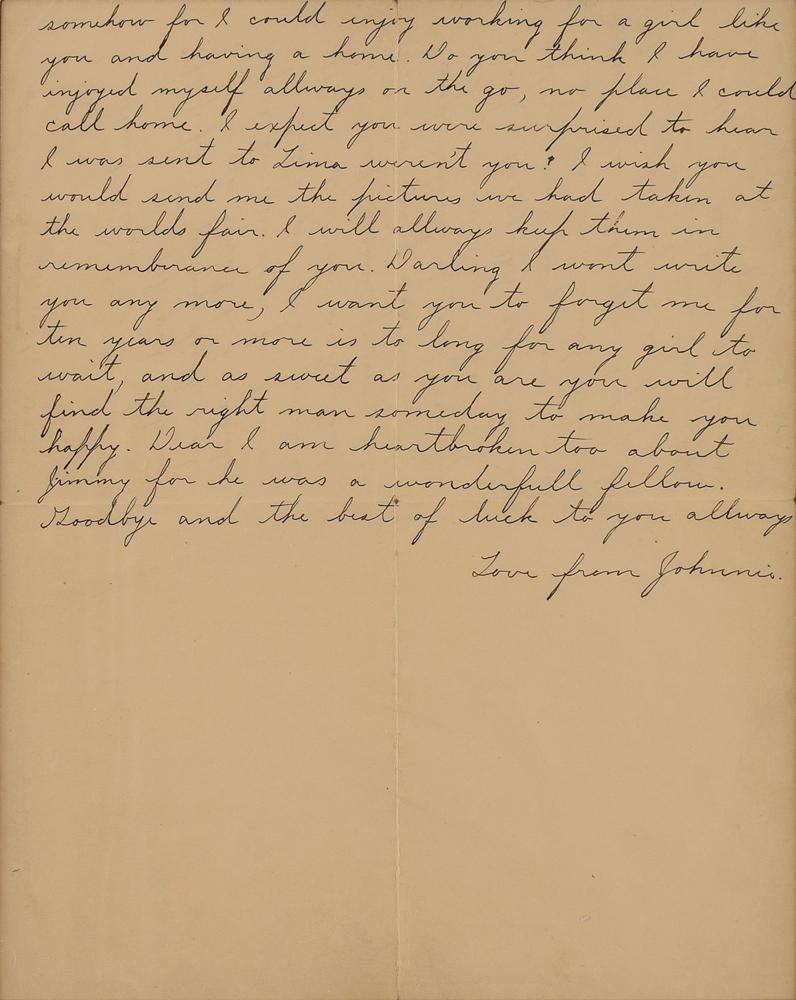 somehow for I could enjoy working for a girl like
you and having a home. Do you think I have
injoyed myself allways on the go, no place I could
call home. I expect you were surprised to hear
I was sent to Lima weren't you? I wish you
would send me the pictures we had taken at
the worlds fair. I will allways keep them in
rememberance of you. Darling I wont write
you any more, I want you to forget me for
ten years or more is to long for any girl to
wait, and as sweet as you are you will
find the right man someday to make you
happy. Dear I am heartbroken too about
Jimmy for he was a wonderfull fellow.
Goodbye and the best of luck to you allways
Love from Johnnie.